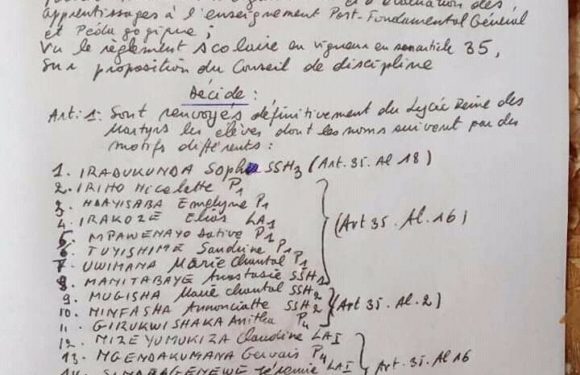 et d'évaluation des
apprentissages à l'enseignement Post-Fondamental Général
et Pédagogique ;
Vu le règlement scolaire en vigueur en son article 35,
Sur proposition du Conseil de discipline
Decide :
Art : 1. Sont renvoyés définitivement du Lycée Reine des
Martyrs les élèves dont les noms suivent par des
motifs différents :
1. IRADUKUNDA Sophie SSH3 (Art. 35. Al 18)
2. IRIHO Nicolette P1
3. NDAYISABA Emelyne P1
4. IRAKOZE Elias LA1
5. MPAWENAYO Dative P1
6. TUYISHIME Sandrine P1
7. UWIMANA Marie Chantal P1
(Art 35. Al. 16)
8. MANITABAYE Anastasie SSH1
9. MUGISHA Marie chantal SSH2
10. NINFASHA Annonciatte SSH2
(Art 35. Al. 2)
11. GIRUKWISHAKA Anitha P4
12. MIZEYUMUKIZA Claudine LAI
13. NGENDAKUMANA Gervais P4
Art 35. Al 16
Jérémie LAI